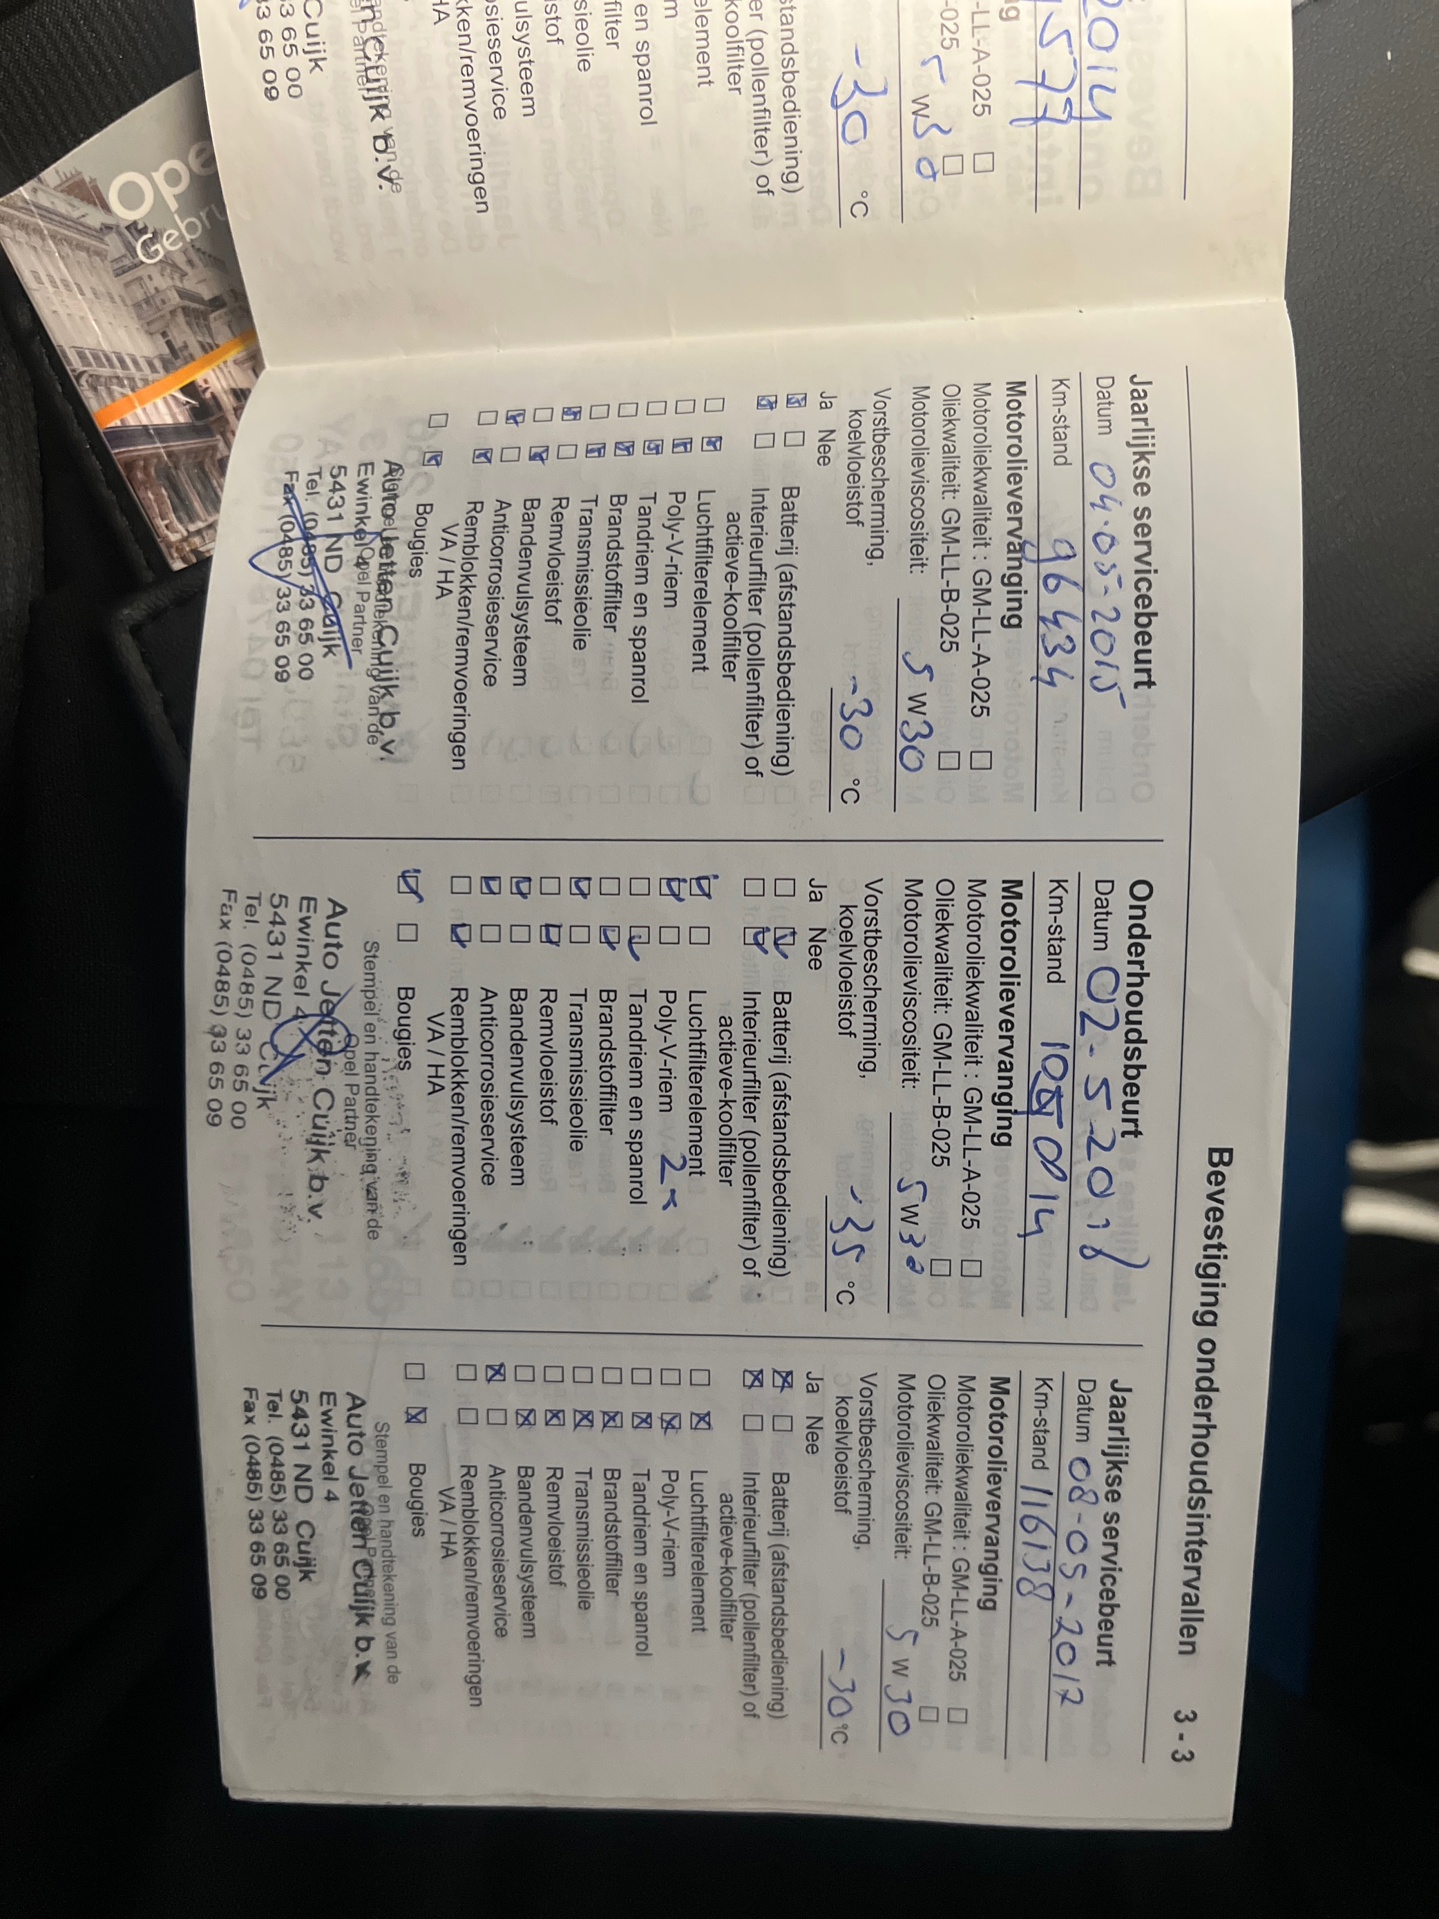 2014
577
ng
-LL-A-025
-025
5 W30
-30 °C
standsbediening)
er (pollenfilter) of
koolfilter
element
m
en spanrol
filter
sieolie
stof
ulsysteem
sieservice
kken/remvoeringen
HA
ndtekening van de
el Partner
n Cuijk b.v.
Cuijk
33 65 00
33 65 09
Ope
Gebru
Bevestiging onderhoudsintervallen 3 - 3
Jaarlijkse servicebeurt
Datum 04-05-2015
Km-stand 96434
Motorolievervanging
Motoroliekwaliteit : GM-LL-A-025
Oliekwaliteit: GM-LL-B-025
Motorolieviscositeit: 5 W30
Vorstbescherming,
koelvloeistof -30 °C
Ja Nee
Batterij (afstandsbediening)
Interieurfilter (pollenfilter) of
actieve-koolfilter
Luchtfilterelement
Poly-V-riem
Tandriem en spanrol
Brandstoffilter
Transmissieolie
Remvloeistof
Bandenvulsysteem
Anticorrosieservice
Remblokken/remvoeringen
VA / HA
Bougies
Opel Partner
Auto Jetten Cuijk b.v.
Ewinkel 4
5431 ND Cuijk
Tel. (0485) 33 65 00
Fax (0485) 33 65 09
Onderhoudsbeurt
Datum 02-5-2016
Km-stand 105014
Motorolievervanging
Motoroliekwaliteit : GM-LL-A-025
Oliekwaliteit: GM-LL-B-025
Motorolieviscositeit: 5W30
Vorstbescherming,
koelvloeistof -35 °C
Ja Nee
Batterij (afstandsbediening)
Interieurfilter (pollenfilter) of
actieve-koolfilter
Luchtfilterelement
Poly-V-riem 2x
Tandriem en spanrol
Brandstoffilter
Transmissieolie
Remvloeistof
Bandenvulsysteem
Anticorrosieservice
Remblokken/remvoeringen
VA / HA
Bougies
Stempel en handtekening van de
Opel Partner
Auto Jetten Cuijk b.v.
Ewinkel 4
5431 ND Cuijk
Tel. (0485) 33 65 00
Fax (0485) 33 65 09
Jaarlijkse servicebeurt
Datum 08-05-2017
Km-stand 116138
Motorolievervanging
Motoroliekwaliteit : GM-LL-A-025
Oliekwaliteit: GM-LL-B-025
Motorolieviscositeit: 5 W30
Vorstbescherming,
koelvloeistof -30 °C
Ja Nee
Batterij (afstandsbediening)
Interieurfilter (pollenfilter) of
actieve-koolfilter
Luchtfilterelement
Poly-V-riem
Tandriem en spanrol
Brandstoffilter
Transmissieolie
Remvloeistof
Bandenvulsysteem
Anticorrosieservice
Remblokken/remvoeringen
VA / HA
Bougies
Stempel en handtekening van de
Opel Partner
Auto Jetten Cuijk b.v.
Ewinkel 4
5431 ND Cuijk
Tel. (0485) 33 65 00
Fax (0485) 33 65 09